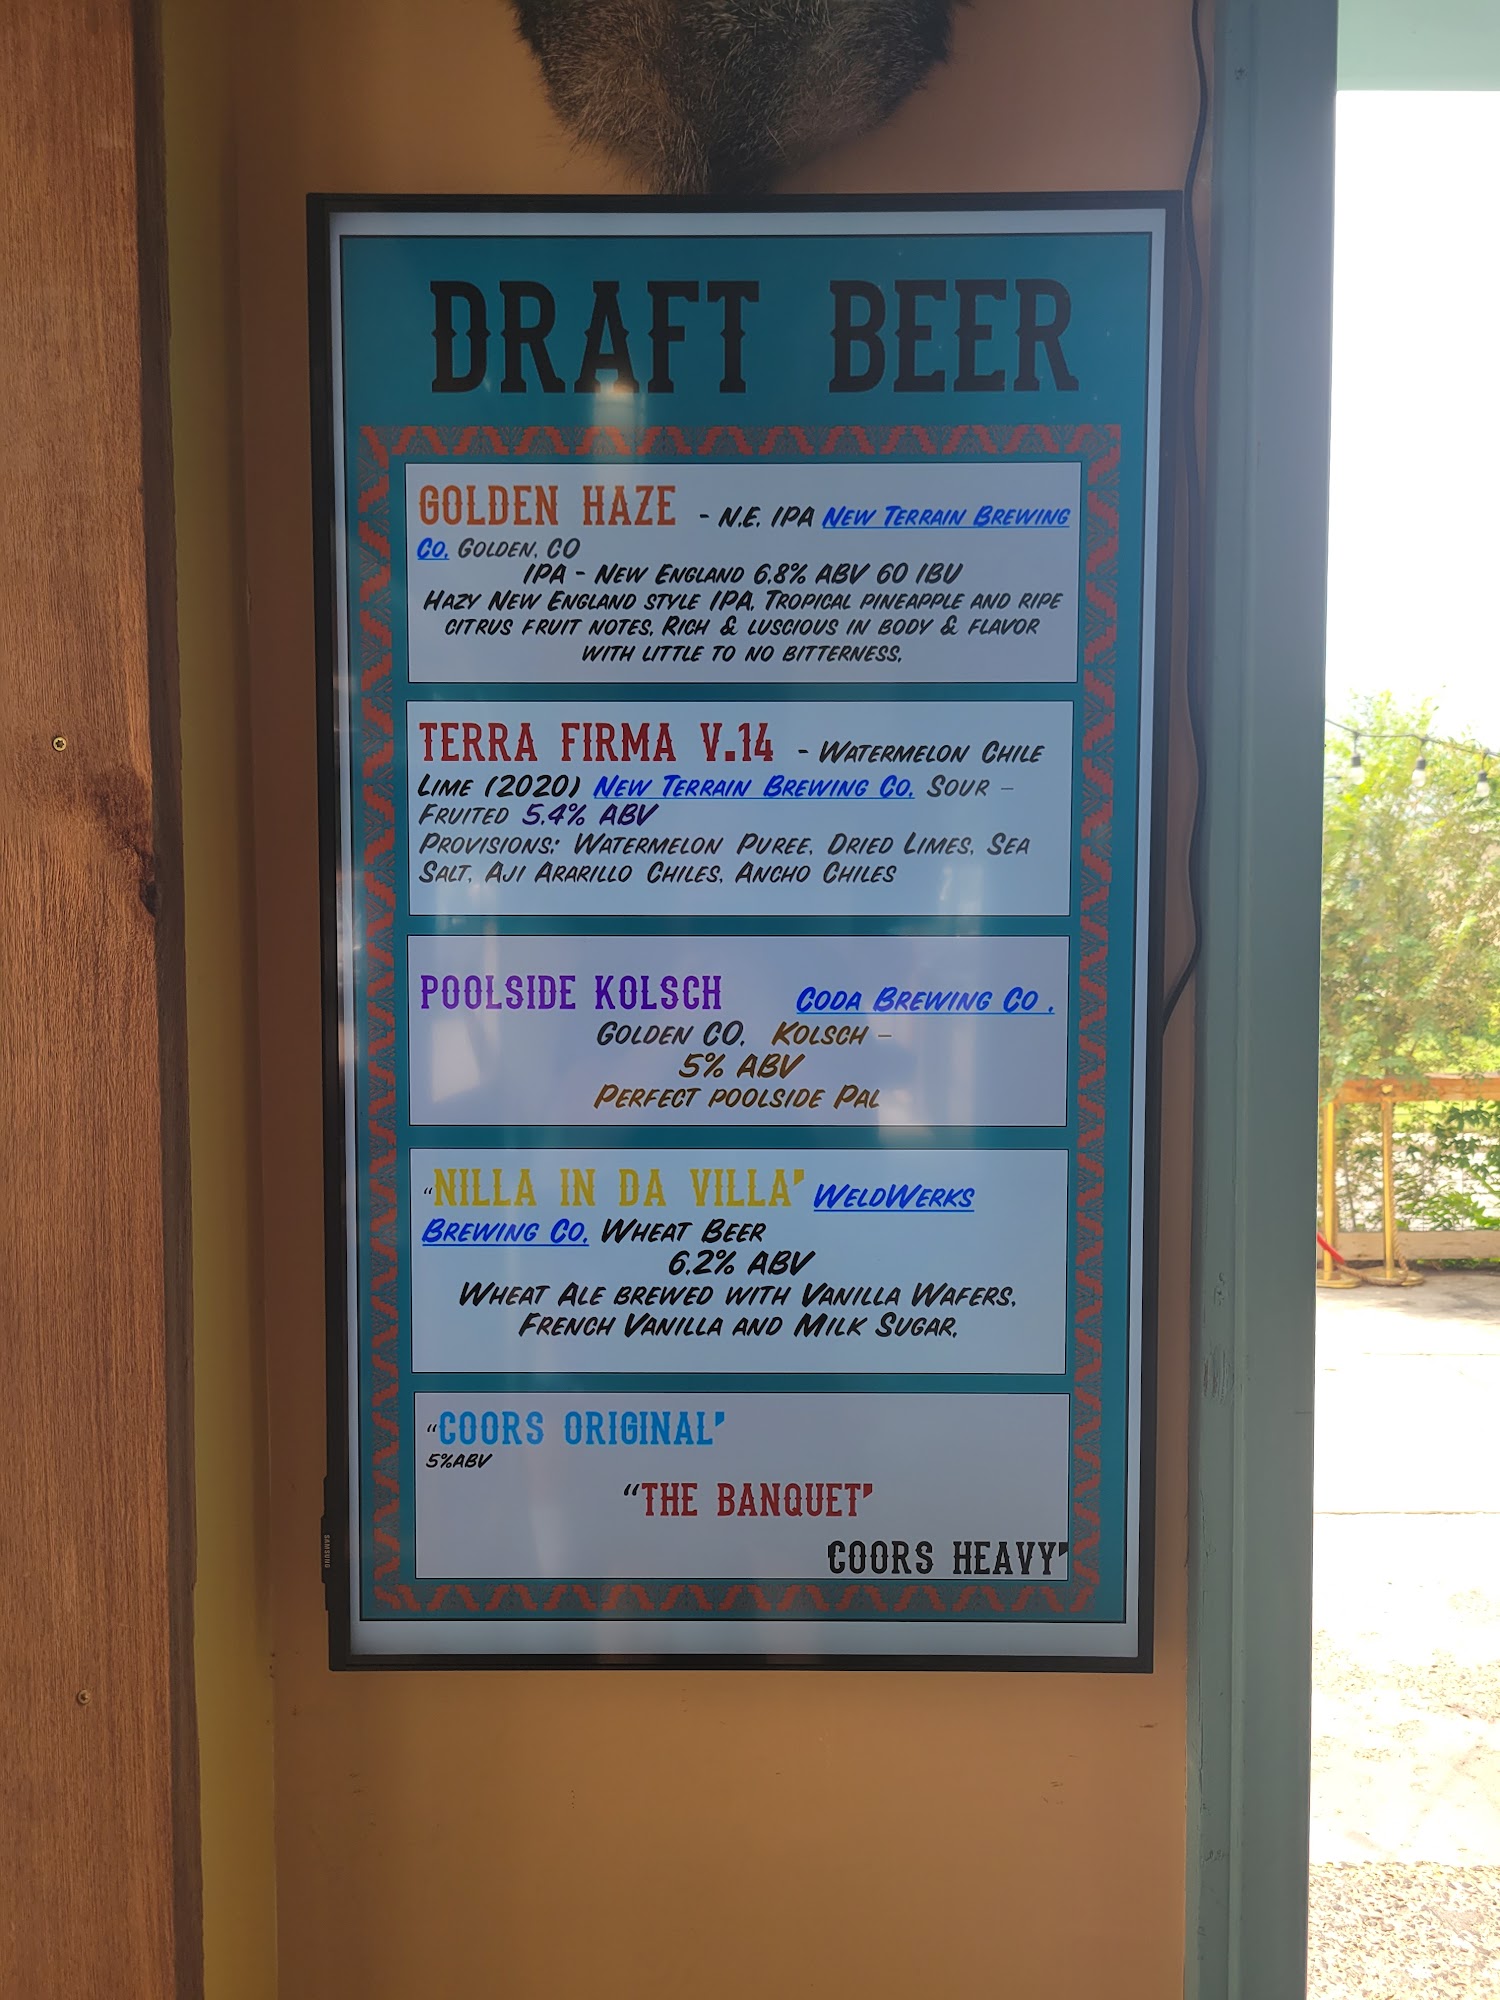 DRAFT BEER
GOLDEN HAZE - N.E. IPA NEW TERRAIN BREWING
CO. GOLDEN, CO
IPA - NEW ENGLAND 6.8% ABV 60 IBU
HAZY NEW ENGLAND STYLE IPA. TROPICAL PINEAPPLE AND RIPE
CITRUS FRUIT NOTES. RICH & LUSCIOUS IN BODY & FLAVOR
WITH LITTLE TO NO BITTERNESS.
TERRA FIRMA V.14 - WATERMELON CHILE
LIME (2020) NEW TERRAIN BREWING CO. SOUR –
FRUITED 5.4% ABV
PROVISIONS: WATERMELON PUREE, DRIED LIMES, SEA
SALT, AJI ARARILLO CHILES, ANCHO CHILES
POOLSIDE KOLSCH CODA BREWING CO .
GOLDEN CO. KOLSCH –
5% ABV
PERFECT POOLSIDE PAL
"NILLA IN DA VILLA" WELDWERKS
BREWING CO. WHEAT BEER
6.2% ABV
WHEAT ALE BREWED WITH VANILLA WAFERS,
FRENCH VANILLA AND MILK SUGAR.
"COORS ORIGINAL"
5%ABV
"THE BANQUET"
COORS HEAVY"
SAMSUNG